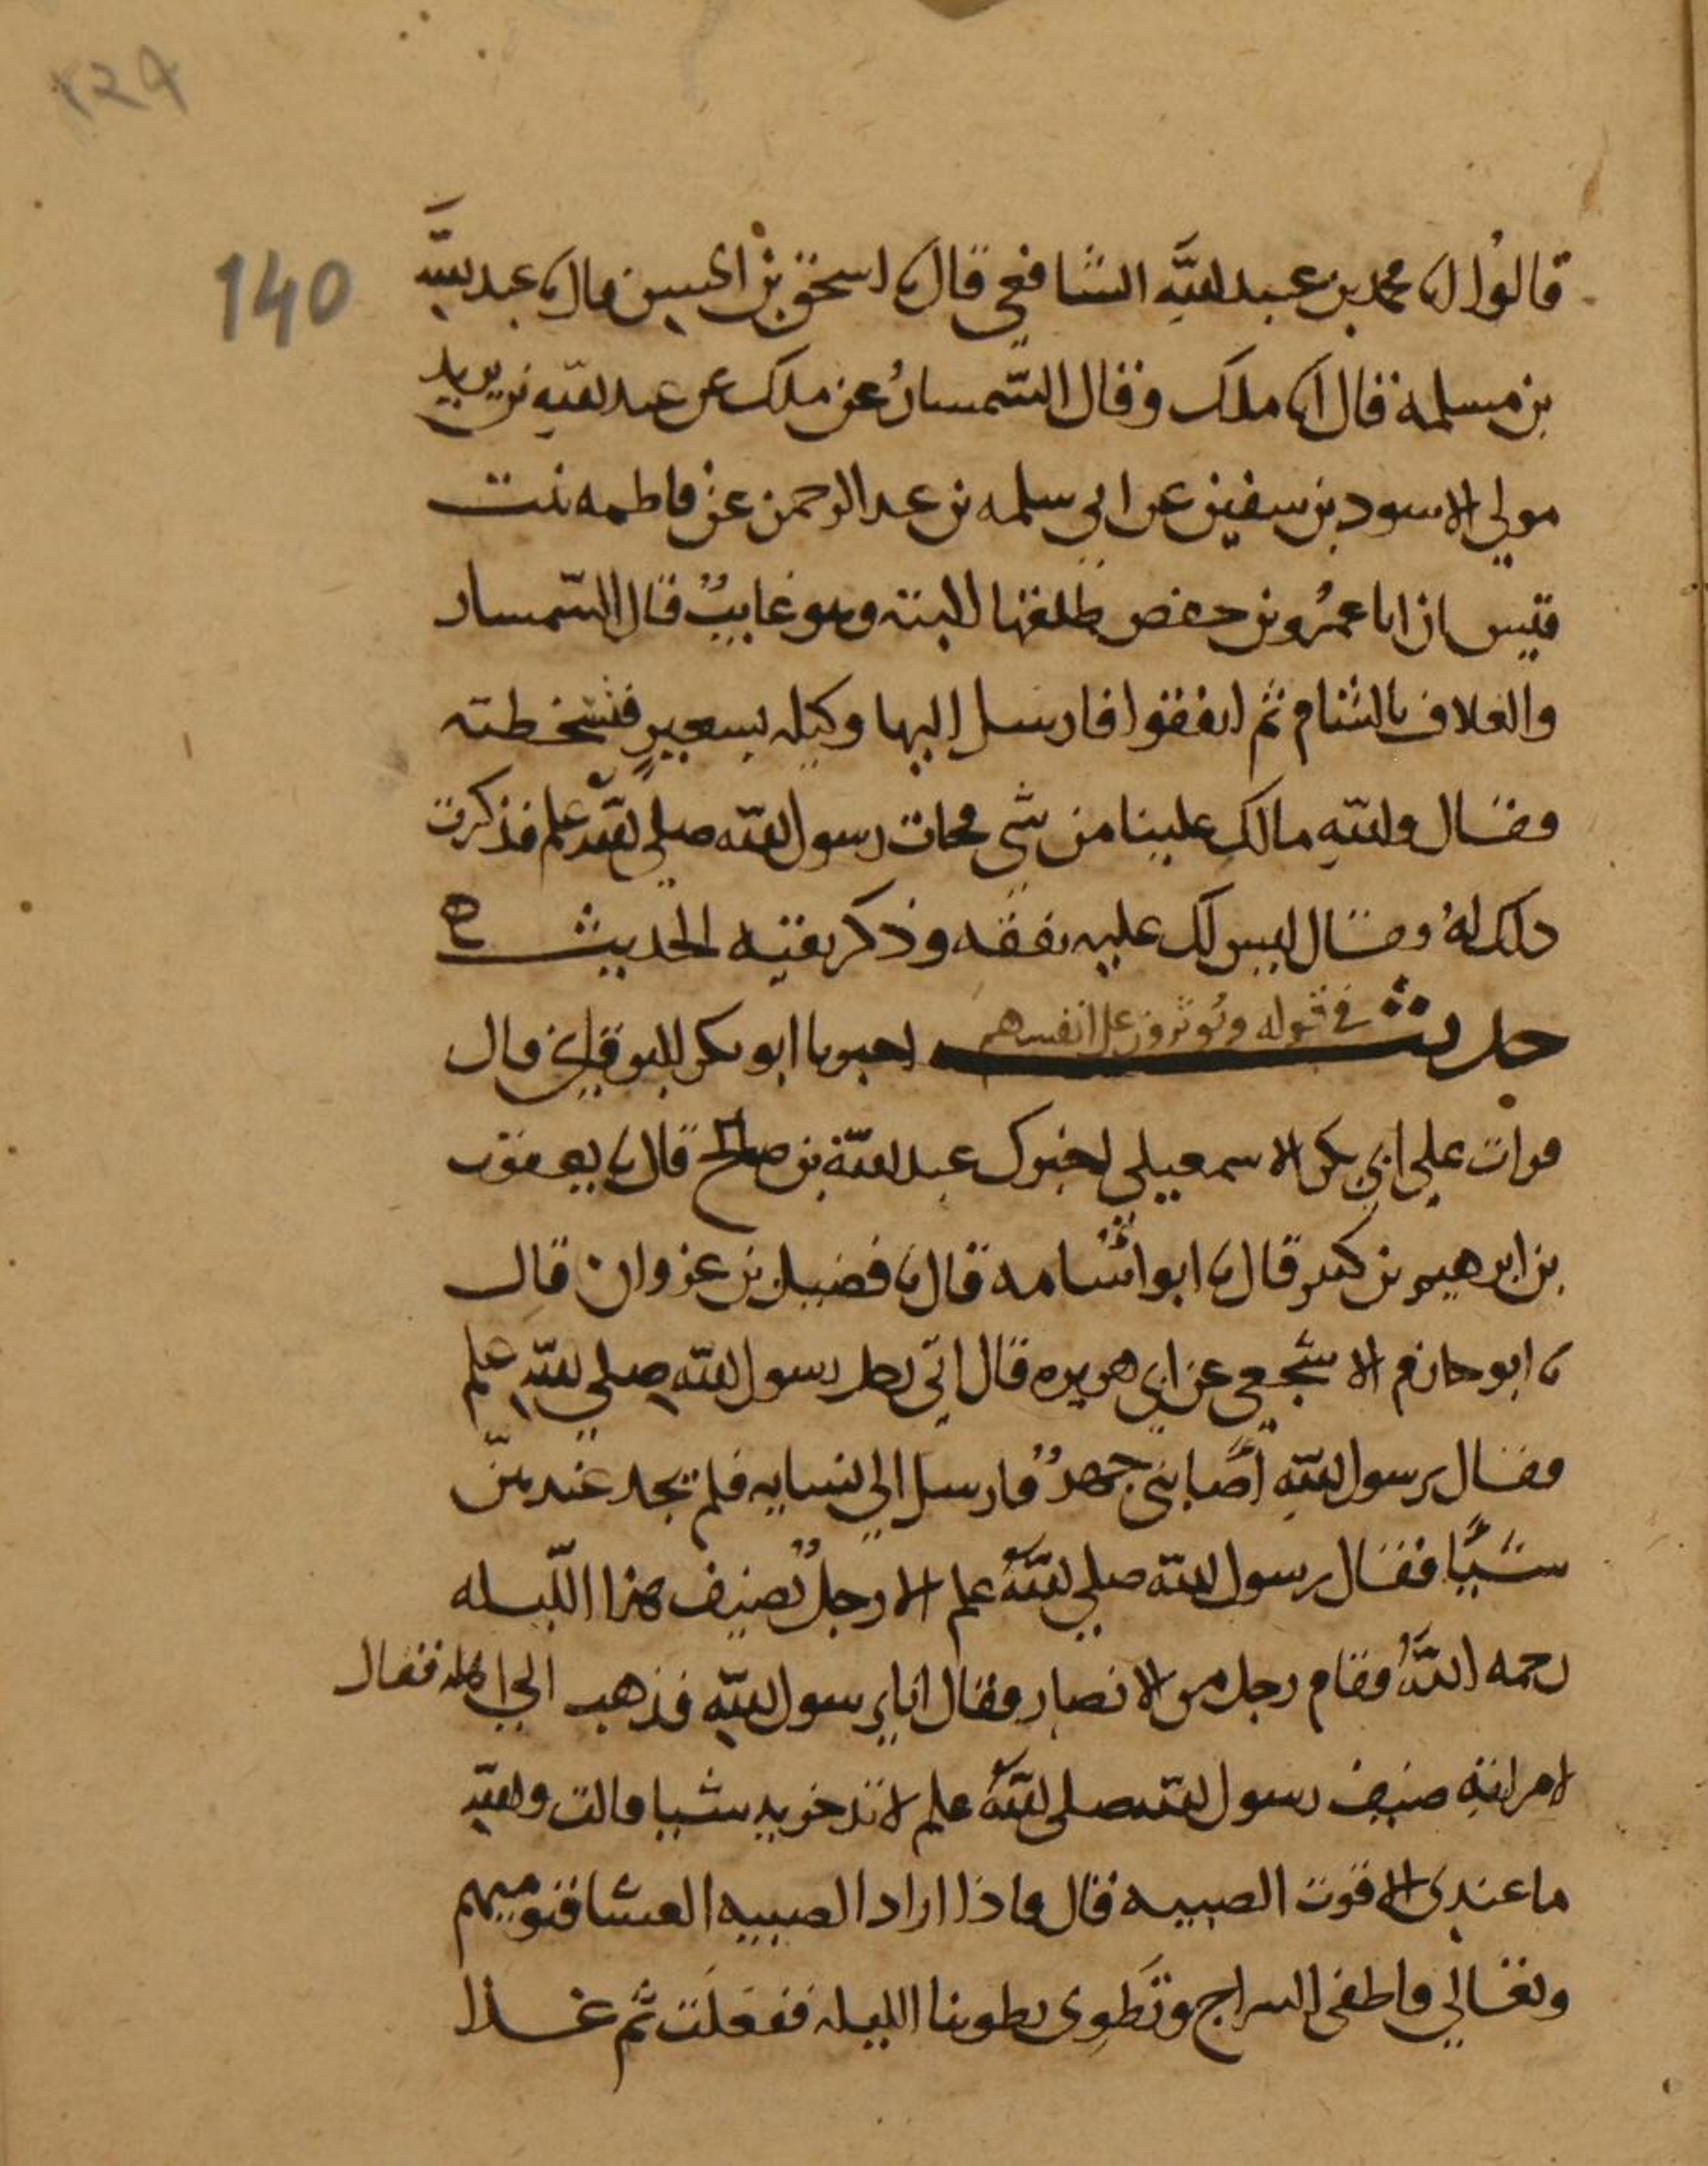 ١٣٩
140
قالوا انا محمد بن عبد الله الشافعي قال نا اسحق بن الحسين قال نا عبد الله
بن مسلمة قال انا ملك وقال السمسار عن ملك عن عبد الله بن يزيد
مولي الاسود بن سفين عن ابي سلمه بن عبد الرحمن عن فاطمه بنت
قيس ان ابا عمرو بن حفص طلقها البته وهو غايب قال السمسار
والعلاف بالشام ثم اتفقوا فارسل اليها وكيله بشعير فتسخطته
فقال والله مالك علينا من شي فجات رسول الله صلي الله علم فذكرت
ذلك له فقال ليس لك عليه نفقه وذكر بقيه الحديث ه
حديث في قوله ويوثرون على انفسهم اخبرنا ابو بكر البرقاني قال
قرات علي ابي بكر الاسمعيلي اخبرك عبد الله بن صالح قال نا يعقوب
بن ابرهيم بن كثير قال نا ابو اسامه قال نا فضيل بن غزوان قال
نا ابو حازم الاشجعي عن ابي هريره قال اتي رجل رسول الله صلي الله علم
فقال يرسول الله اصابني جهد فارسل الي نسايه فلم يجد عندهن
شيًا فقال رسول الله صلي الله علم الا رجل يضيف هذا الليله
رحمه الله فقام رجل من الانصار فقال انا يرسول الله فذهب الي اهله فقال
لامراته ضيف رسول الله صلي الله علم لا تدخريه شيا قالت والله
ما عندي الا قوت الصبيه قال فاذا اراد الصبيه العشا فنوميهم
وتعالي فاطفي السراج ونطوي بطوننا الليله ففعلت ثم غدا